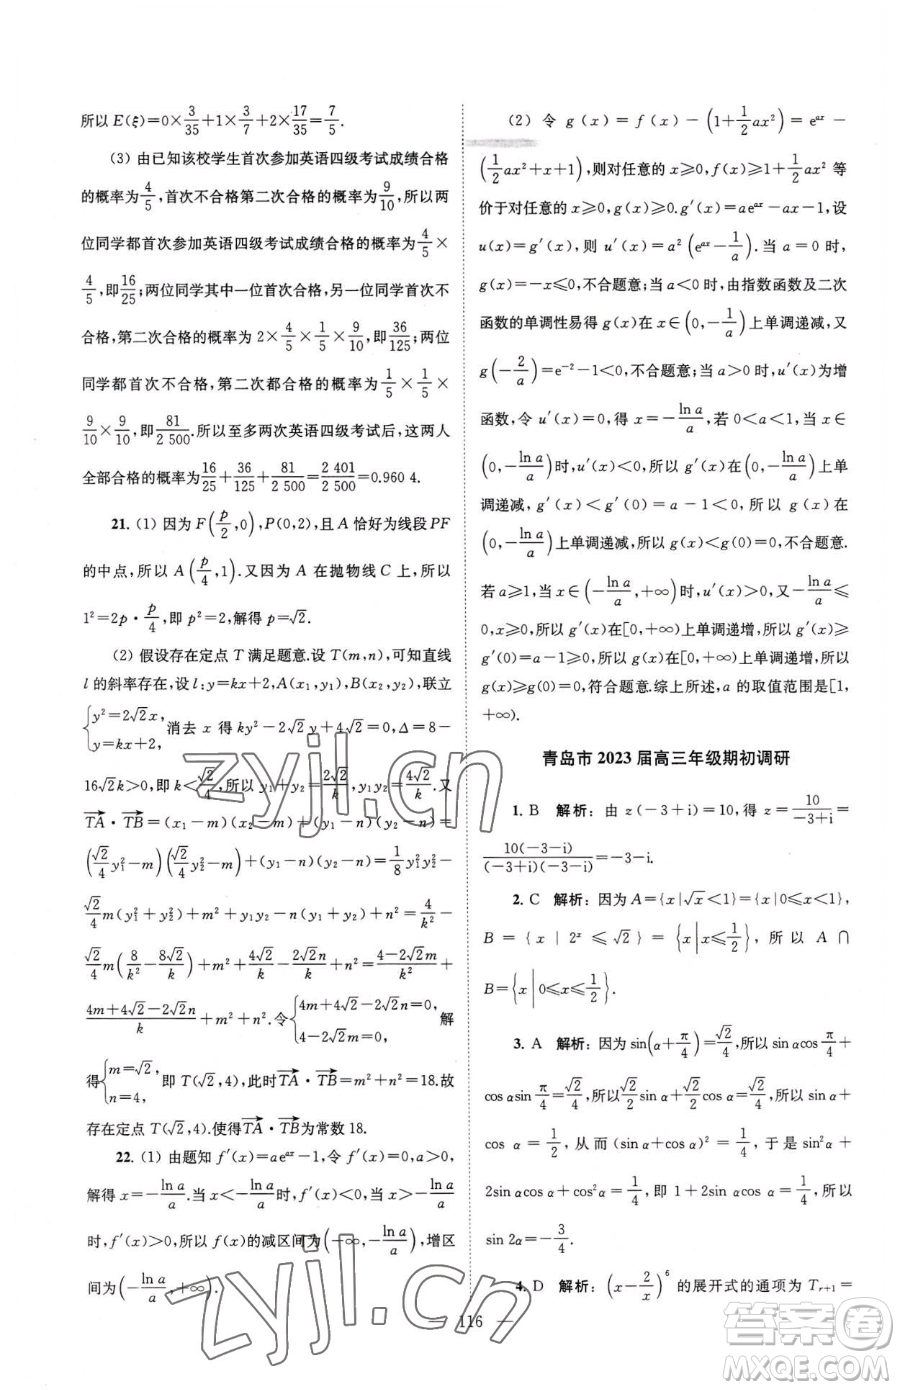 所以 E(ξ)=0×3/35+1×3/7+2×17/35=7/5.
(3) 由已知该校学生首次参加英语四级考试成绩合格
的概率为4/5,首次不合格第二次合格的概率为9/10,所以两
位同学都首次参加英语四级考试成绩合格的概率为4/5×
4/5,即16/25;两位同学其中一位首次合格,另一位首次不
合格、第二次合格的概率为 2×4/5×1/5×9/10,即36/125;两位
同学都首次不合格,第二次都合格的概率为1/5×1/5×
9/10×9/10,即81/2 500.所以至多两次英语四级考试后,这两人
全部合格的概率为16/25+36/125+81/2 500=2 401/2 500=0.960 4.
21. (1) 因为 F(p/2,0),P(0,2),且 A 恰好为线段 PF
的中点,所以 A(p/4,1).又因为 A 在抛物线 C 上,所以
1²=2p·p/4,即 p²=2,解得 p=√2.
(2) 假设存在定点 T 满足题意.设 T(m,n),可知直线
l 的斜率存在,设 l:y=kx+2,A(x₁,y₁),B(x₂,y₂),联立
{y²=2√2x, y=kx+2, 消去 x 得 ky²-2√2y+4√2=0,Δ=8-
16√2k>0,即 k<√2/4,所以 y₁+y₂=2√2/k,y₁y₂=4√2/k.又
TA·TB=(x₁-m)(x₂-m)+(y₁-n)(y₂-n)=
(√2/4y₁²-m)(√2/4y₂²-m)+(y₁-n)(y₂-n)=1/8y₁²y₂²-
√2/4m(y₁²+y₂²)+m²+y₁y₂-n(y₁+y₂)+n²=4/k²-
√2/4m(8/k²-8√2/k)+m²+4√2/k-2√2n/k+n²=4-2√2m/k²+
4m+4√2-2√2n/k+m²+n².令{4m+4√2-2√2n=0, 4-2√2m=0, 解
得{m=√2, n=4, 即 T(√2,4),此时TA·TB=m²+n²=18.故
存在定点 T(√2,4).使得TA·TB为常数 18.
22. (1) 由题知 f′(x)=aeᵃˣ-1,令 f′(x)=0,a>0,
解得 x=-ln a/a.当 x<-ln a/a时,f′(x)<0,当 x>-ln a/a
时,f′(x)>0,所以 f(x)的减区间为(-∞,-ln a/a),增区
间为(-ln a/a,+∞).
(2) 令 g(x)=f(x)-(1+1/2ax²)=eᵃˣ-
(1/2ax²+x+1),则对任意的 x≥0,f(x)≥1+1/2ax² 等
价于对任意的 x≥0,g(x)≥0.g′(x)=aeᵃˣ-ax-1,设
u(x)=g′(x),则 u′(x)=a²(eᵃˣ-1/a).当 a=0 时,
g(x)=-x≤0,不合题意;当 a<0 时,由指数函数及二次
函数的单调性易得 g(x)在 x∈(0,-1/a)上单调递减,又
g(-2/a)=e⁻²-1<0,不合题意;当 a>0 时,u′(x)为增
函数,令 u′(x)=0,得 x=-ln a/a,若 0<a<1,当 x∈
(0,-ln a/a)时,u′(x)<0,所以 g′(x)在(0,-ln a/a)上单
调递减,g′(x)<g′(0)=a-1<0,所以 g(x)在
(0,-ln a/a)上单调递减,所以 g(x)<g(0)=0,不合题意.
若 a≥1,当 x∈(-ln a/a,+∞)时,u′(x)>0,又-ln a/a≤
0,x≥0,所以 g′(x)在[0,+∞)上单调递增,所以 g′(x)≥
g′(0)=a-1≥0,所以 g(x)在[0,+∞)上单调递增,所以
g(x)≥g(0)=0,符合题意.综上所述,a 的取值范围是[1,
+∞).
青岛市 2023 届高三年级期初调研
1. B 解析:由 z(-3+i)=10,得 z=10/-3+i=
10(-3-i)/(-3+i)(-3-i)=-3-i.
2. C 解析:因为 A={x|√x<1}={x|0≤x<1},
B={x|2ˣ≤√2}={x|x≤1/2},所以 A∩
B={x|0≤x≤1/2}.
3. A 解析:因为 sin(α+π/4)=√2/4,所以 sin αcosπ/4+
cos αsinπ/4=√2/4,所以√2/2sin α+√2/2cos α=√2/4,所以 sin α+
cos α=1/2,从而(sin α+cos α)²=1/4,所以 sin²α+
2sin αcos α+cos²α=1/4,即 1+2sin αcos α=1/4,所以
sin 2α=-3/4.
4. D 解析:(x-2/x)⁶ 的展开式的通项为 Tᵣ₊₁=
116 —
zyjl.cn
答案圈
MXQE.COM